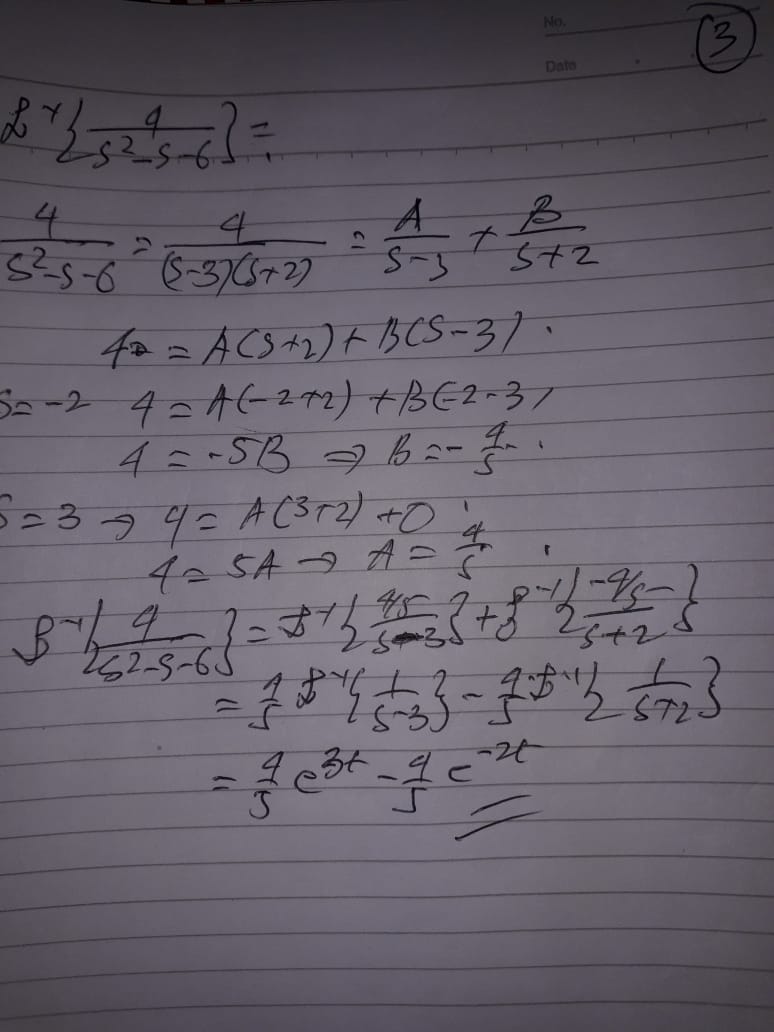 No.
③
Date
ℒ⁻¹{4/(s²-s-6)} =
4/(s²-s-6) = 4/((s-3)(s+2)) = A/(s-3) + B/(s+2)
4 = A(s+2) + B(s-3).
s = -2 4 = A(-2+2) + B(-2-3)
4 = -5B ⇒ B = -4/5.
s = 3 → 4 = A(3+2) + 0
4 = 5A → A = 4/5.
ℒ⁻¹{4/(s²-s-6)} = ℒ⁻¹{(4/5)/(s-3)} + ℒ⁻¹{(-4/5)/(s+2)}
= 4/5 ℒ⁻¹{1/(s-3)} - 4/5 ℒ⁻¹{1/(s+2)}
= 4/5 e^{3t} - 4/5 e^{-2t}